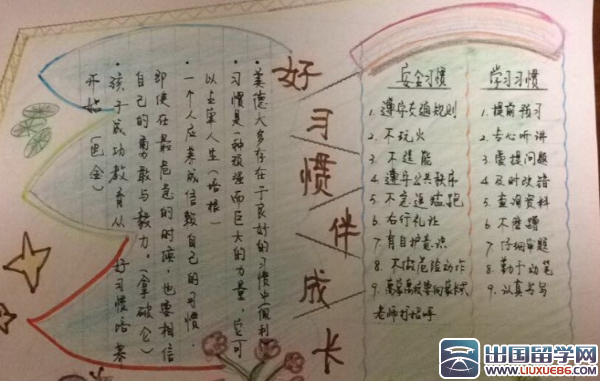 好习惯伴成长
·美德大多存在于良好的习惯中(佩利)
·习惯是一种顽强而巨大的力量,它可
以主宰人生(培根)
·一个人应养成信赖自己的习惯,
即使在最危急的时候,也要相信
自己的勇敢与毅力。(拿破仑)
·孩子成功教育从好习惯培养
开始(巴金)
安全习惯
1.遵守交通规则
2.不玩火
3.不逞能
4.遵守公共秩序
5.不追跑
6.右行礼让
7.有自护意识
8.不做危险动作
9.要向家长或
老师打招呼
学习习惯
1.提前预习
2.专心听讲
3.爱提问题
4.及时改错
5.查阅资料
6.不磨蹭
7.仔细审题
8.勤于动笔
9.认真书写
出国留学网
www.liuxue86.com